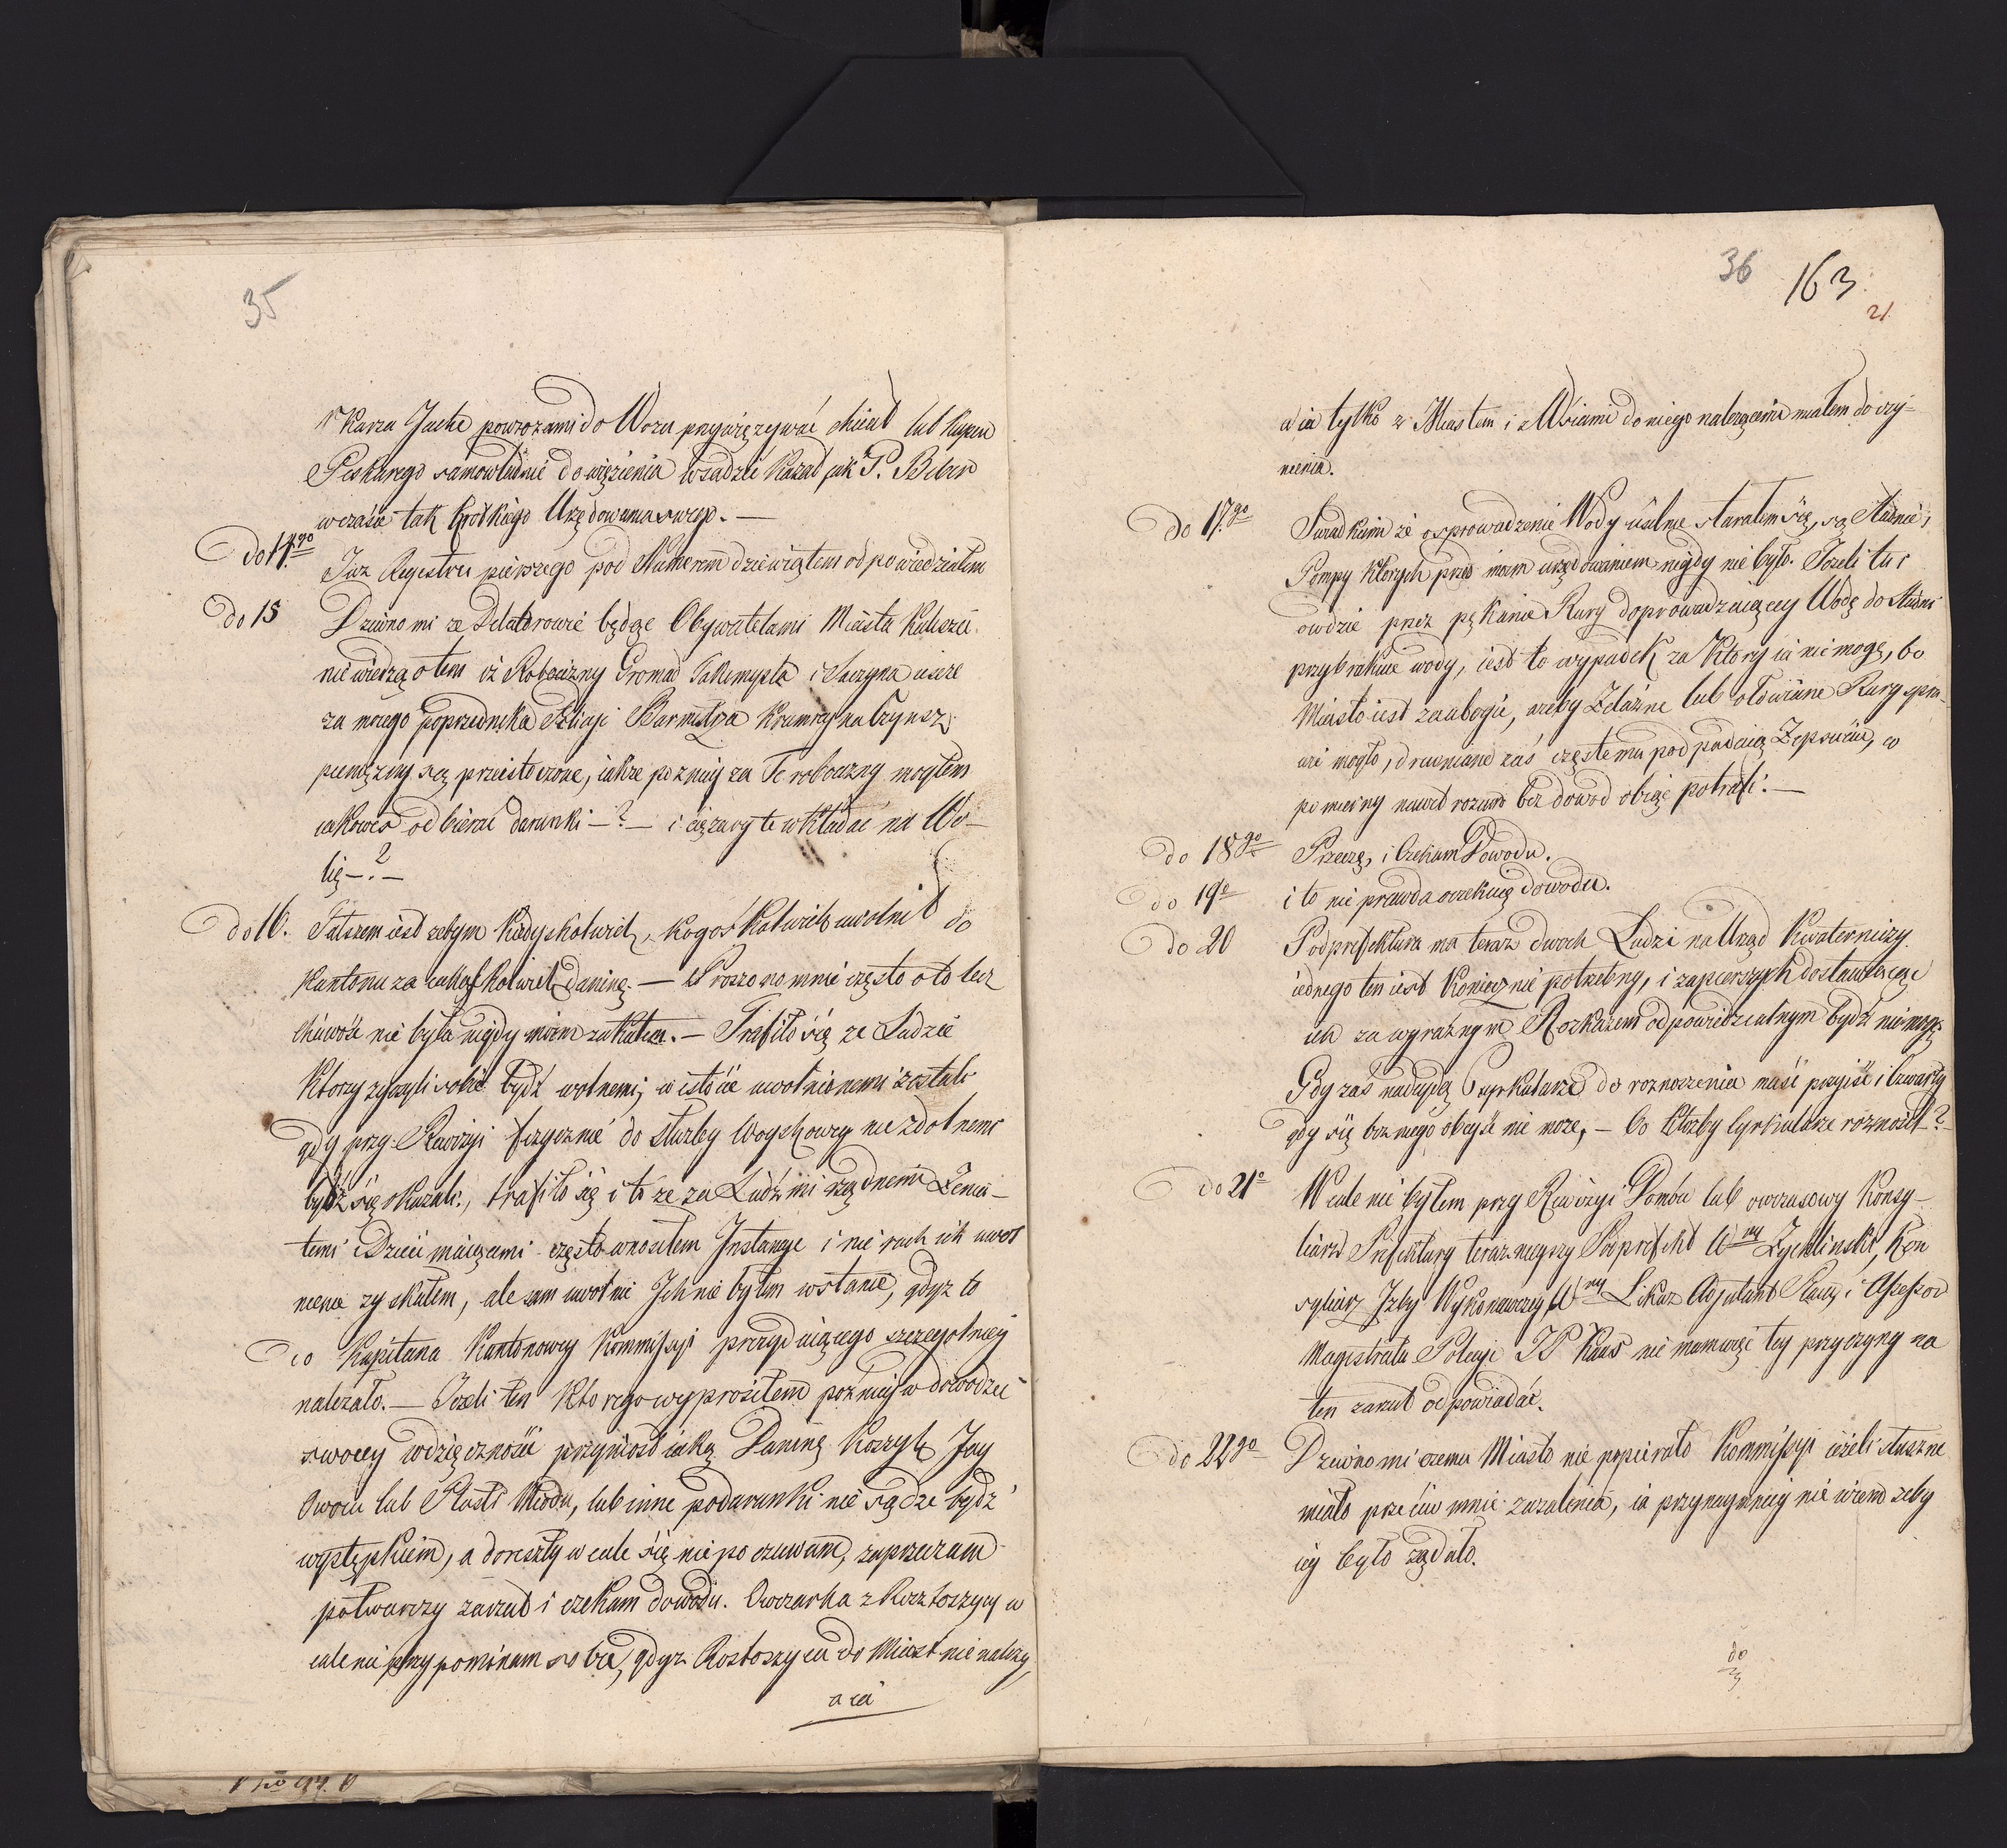 35
karza Jache powrozami do Wozu przywięzywać chciał lub kupca
Peskarego samowładnie do więzienia wsadzić kazał jak P. Biber
wczasie tak krotkiego Urzędowania swego. —
do 14.go Juz Regestru pierwszego pod Numerem dziewiątem odpowiedziałem
do 15 Dziwno mi ze Delatorowie będąc Obywatelami Miasta Kalisza
nie wiedzą o tem iż Robocizny Gromad Tskemysla i Saczyna ieszcze
za moiego poprzednika Policyi Burmistrza Kramrzy na Czynsz
pieniężny są przeistoczone, iakże pozniey za Te robocizny mogłem
iakowes odbierać darunki —? — i ciężary te wkładać na Wo-
lię —? —
do 16. Fałszem iest zebym kiedyskolwiek, kogoś kolwiek uwolnił do
Kantonu za iakąskolwiek daninę. — Proszono mnie często o to lecz
chciwość nie była nigdy moiem zakałem. — Trafiło się ze Ludzie
ktorzy zyczyli sobie bydź wolnemi, w istocie uwolnionemi zostali
gdy przy Rewizyi fizycznie do służby Woyskowey niezdolnemi
bydź się okazali, trafiło się i to ze za Ludźmi rządnemi Zona-
temi i Dzieci maiącemi często wnosiłem Instancye i nie raz ich uwol
nienie zyskałem, ale sam uwolnić Ich nie byłem wstanie, gdyz to
do Kapitana Kantonowey Kommissyi prezyduiącego szczegolniey
nalezało. — Jezeli ten ktorego wyprosiłem pozniey w dowodzie
swoiey wdzięcznosci przyniosł iaką Daninę Koszyk Jay
Owocu lub Plastr Miodu, lub inne podarunki nie sądze bydź
występkiem, a doreszty w cale się nie poczuwam, zaprzeczam
potwarczy zarzut i czekam dowodu. Owczarka z Rosztoszycy w
cale nie przypominam sobie, gdyz Rostoszyca do Miast nie nalezy,
a ia
36 163
21
a ia tylko z Miastem i Wsiami do niego nalezącemi miałem do czy-
nienia.
Do 17.go Swiadkiem ze o sprowadzenie Wody usilnie starałem się, są Studnie,
Pompy ktorych przed moim urzędowaniem nigdy nie było. Jezeli tu i
owdzie przez pękanie Rury doprowadzaiącey Wodę do Studni
przybrakuie wody, iest to wypadek za ktory ia nie mogę, bo
Miasto iest za ubogie, azeby Zelazne lub ołowianne Rury spra-
wić mogło, drewniane zaś częstemu podpadaią Zepsuciu, co
pomierny nawet rozum bez dowod obiąć potrafi. —
do 18go Przeczę, i Czekam Dowodu.
do 19o i to nie prawda oczekuię dowodu.
do 20 Podprefektura ma teraz dwoch Ludzi na Urząd Kwaterniczy
iednego ten iest koniecznie potrzebny, i za pierszych dostawiaiąc
ich za wyraznym Rozkazem odpowiedzialnym bydź nie mogę.
Gdy zaś nadeydą Cyrkularze do roznoszenia musi przyiść i Czwarty
gdy się bez niego obeyść nie może, — bo ktozby Cyrkularze roznosił?
do 21o W cale nie byłem przy Rewizyi Domów lub owczasowy Konsy-
liarz Prefektury teraznieyszy Podprefekt Wny Zychlinski, Kon
syliarz Izby Wykonawczey Wny Likaz Adjutant Placu i Assessor
Magistratu Policyi JP Kaas nie mam więc tey przyczyny na
ten zarzut odpowiadać.
do 22go Dziwno mi czemu Miasto nie popierało Kommissyi iezeli słuszne
miało przeciw mnie zazalenia, ia przynaymniey nie wiem zeby
iey było żądało.
do